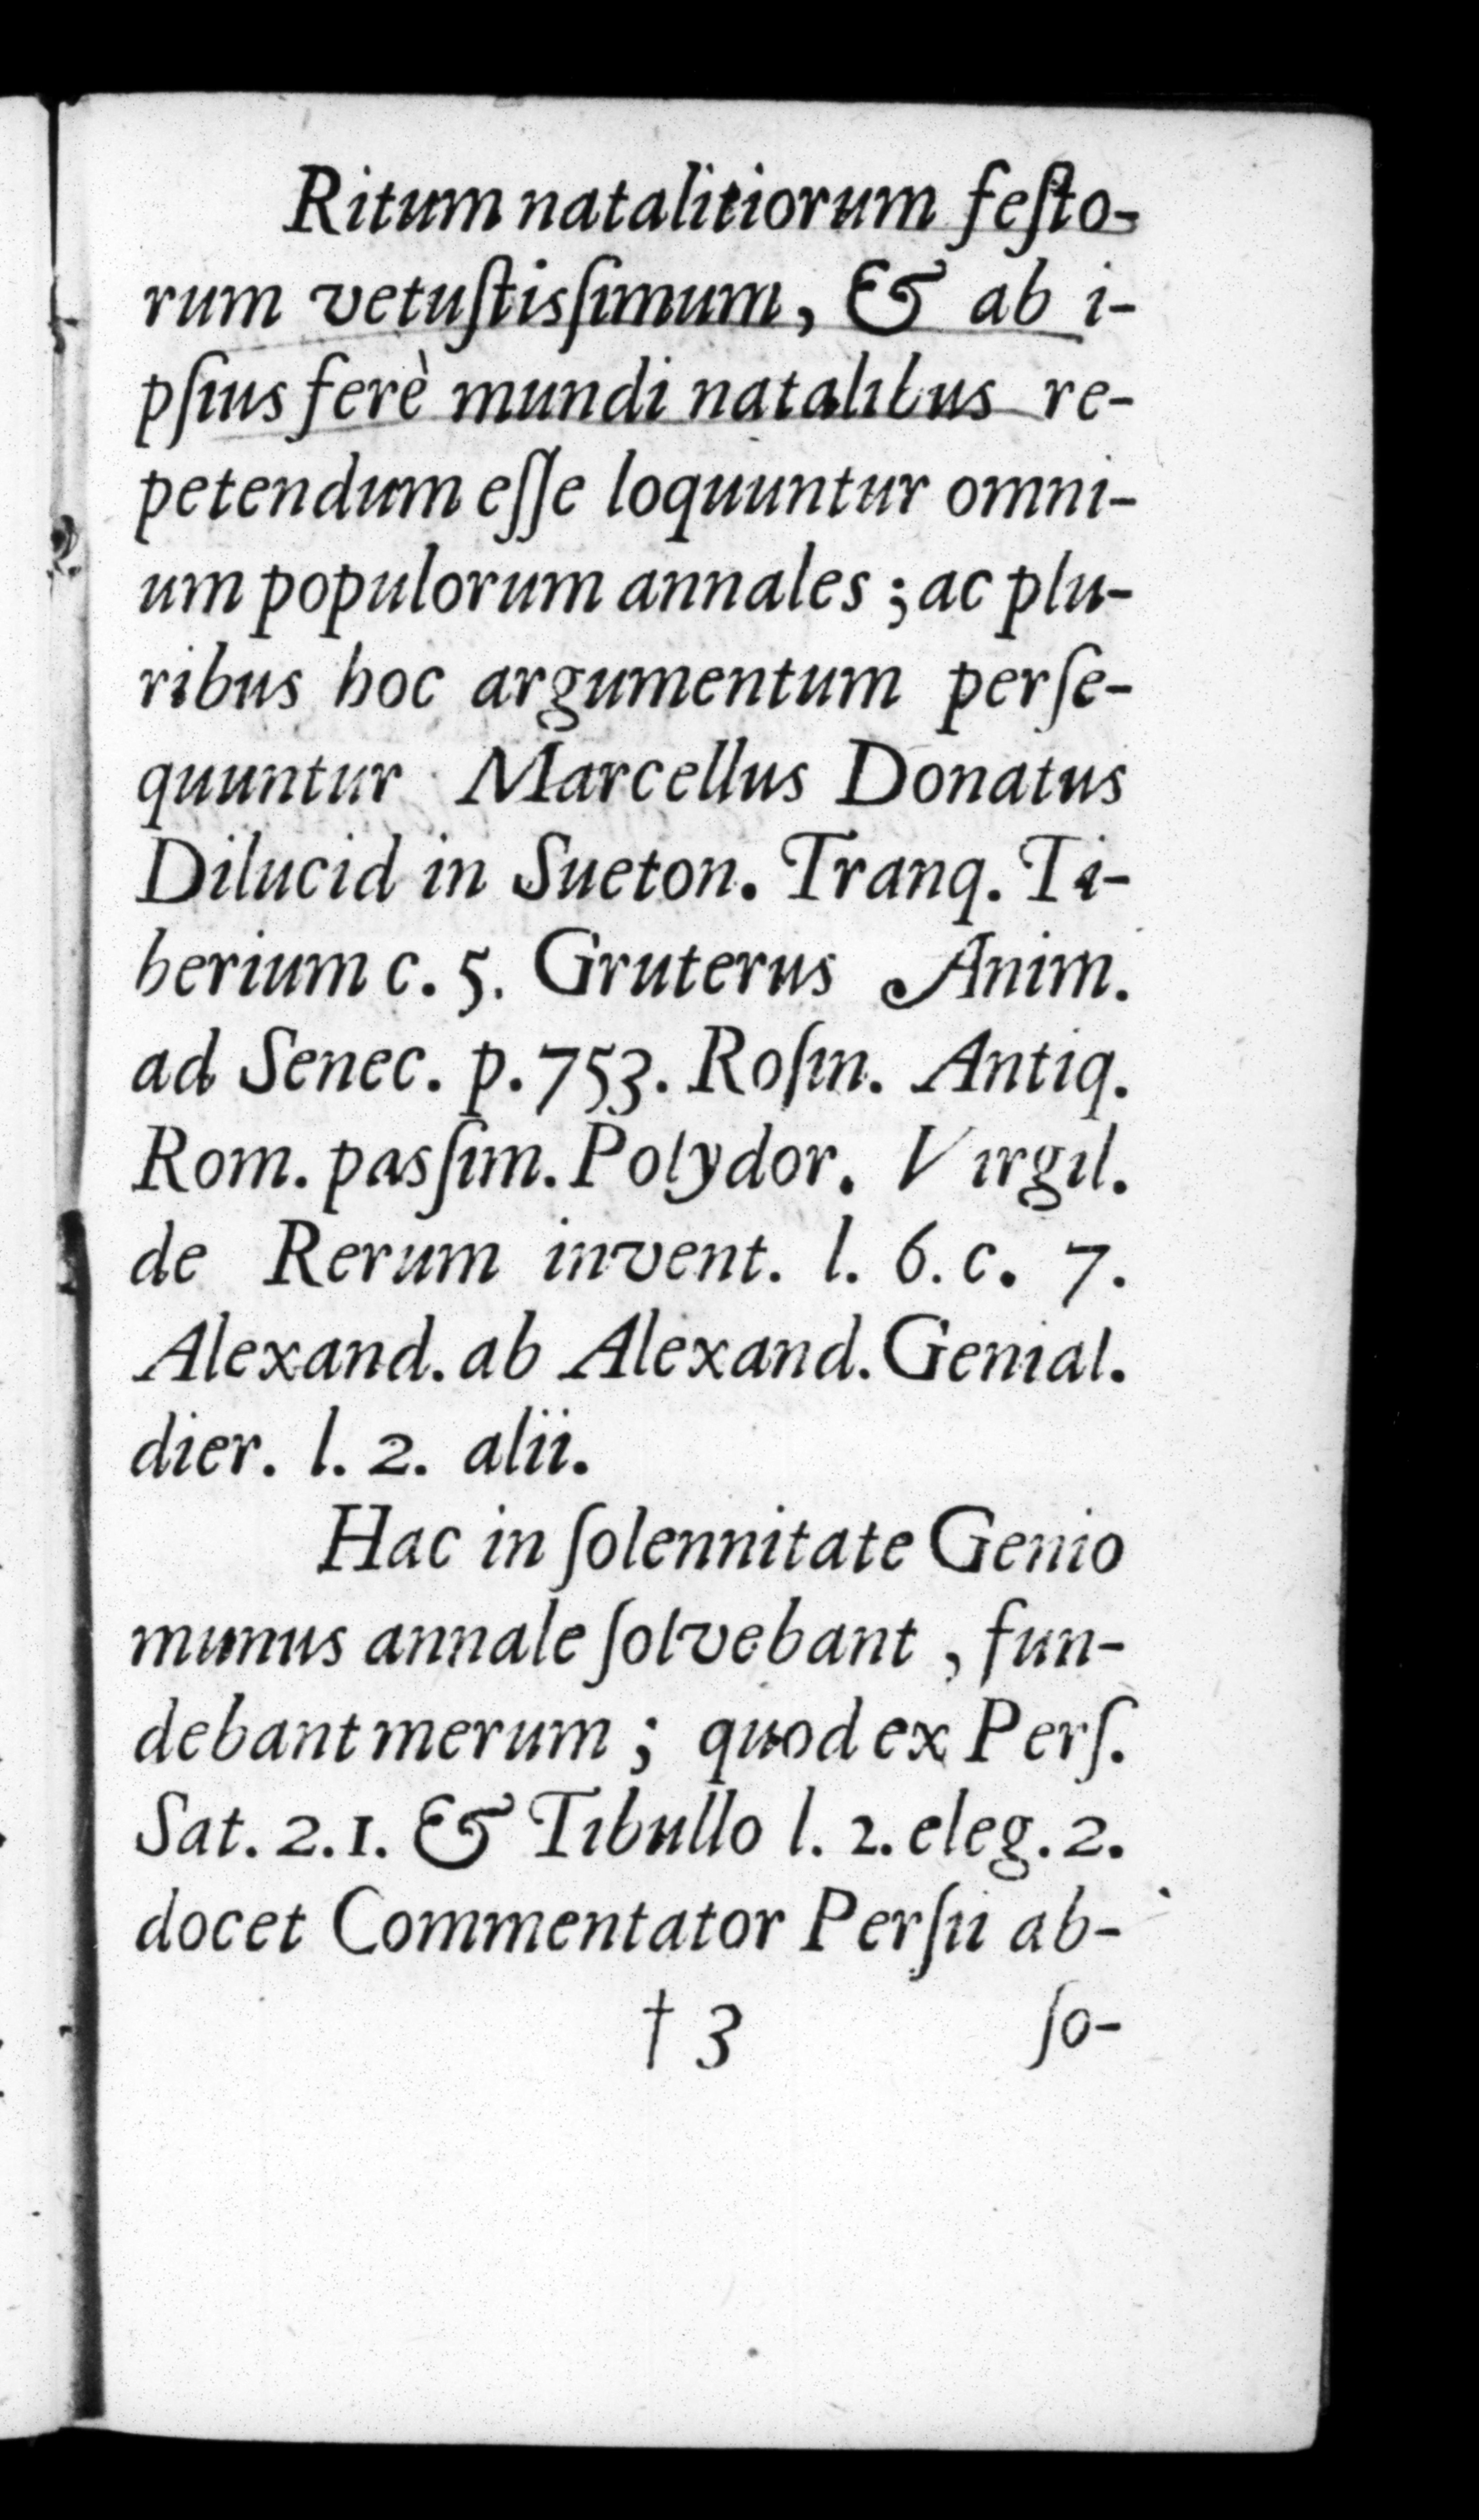 Ritum natalitiorum feſto-
rum vetuſtisſimum, & ab i-
pſius ferè mundi natalibus re-
petendum eſſe loquuntur omni-
um populorum annales ; ac plu-
ribus hoc argumentum perſe-
quuntur Marcellus Donatus
Dilucid in Sueton. Tranq. Ti-
berium c. 5. Gruterus Anim.
ad Senec. p. 753. Roſin. Antiq.
Rom. pasſim. Polydor. Virgil.
de Rerum invent. l. 6. c. 7.
Alexand. ab Alexand. Genial.
dier. l. 2. alii.
Hac in ſolennitate Genio
munus annale ſolvebant , fun-
debant merum ; quod ex Perſ.
Sat. 2. 1. & Tibullo l. 2. eleg. 2.
docet Commentator Perſii ab-
† 3 ſo-